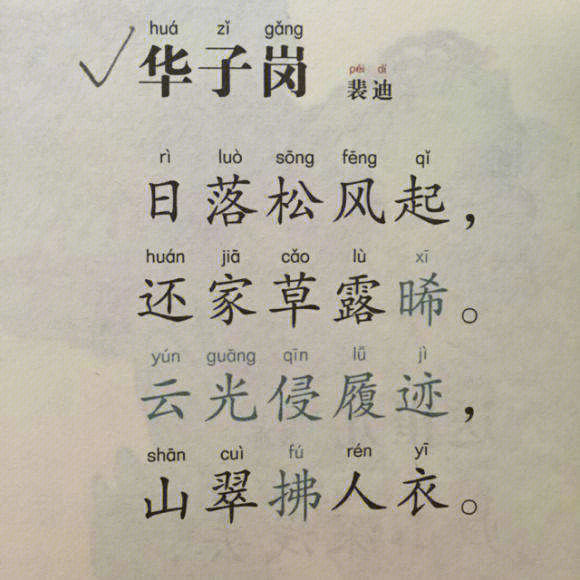 huá zǐ gǎng
华子岗
péi dí
裴迪
rì luò sōng fēng qǐ
日落松风起，
huán jiā cǎo lù xī
还家草露晞。
yún guāng qīn lǚ jì
云光侵履迹，
shān cuì fú rén yī
山翠拂人衣。